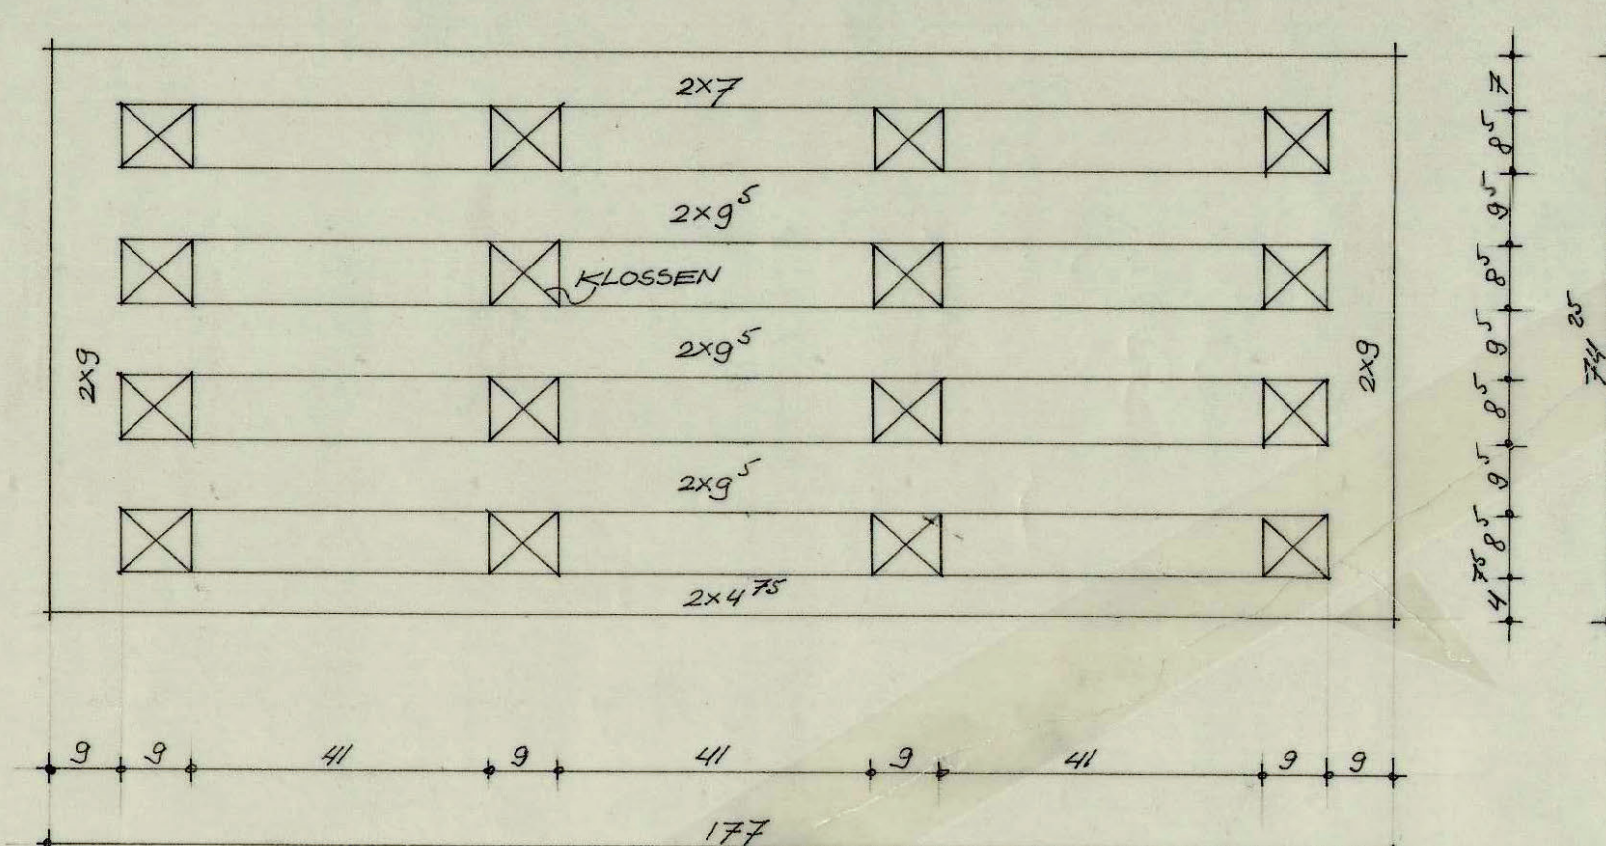 2×7
2×9⁵
KLOSSEN
2×9⁵
2×9
2×9
2×9⁵
2×4⁷⁵
7
8⁵
9⁵
8⁵
9⁵
8⁵
9⁵
8⁵
4⁷⁵
74²⁵
9 9 41 9 41 9 41 9 9
177